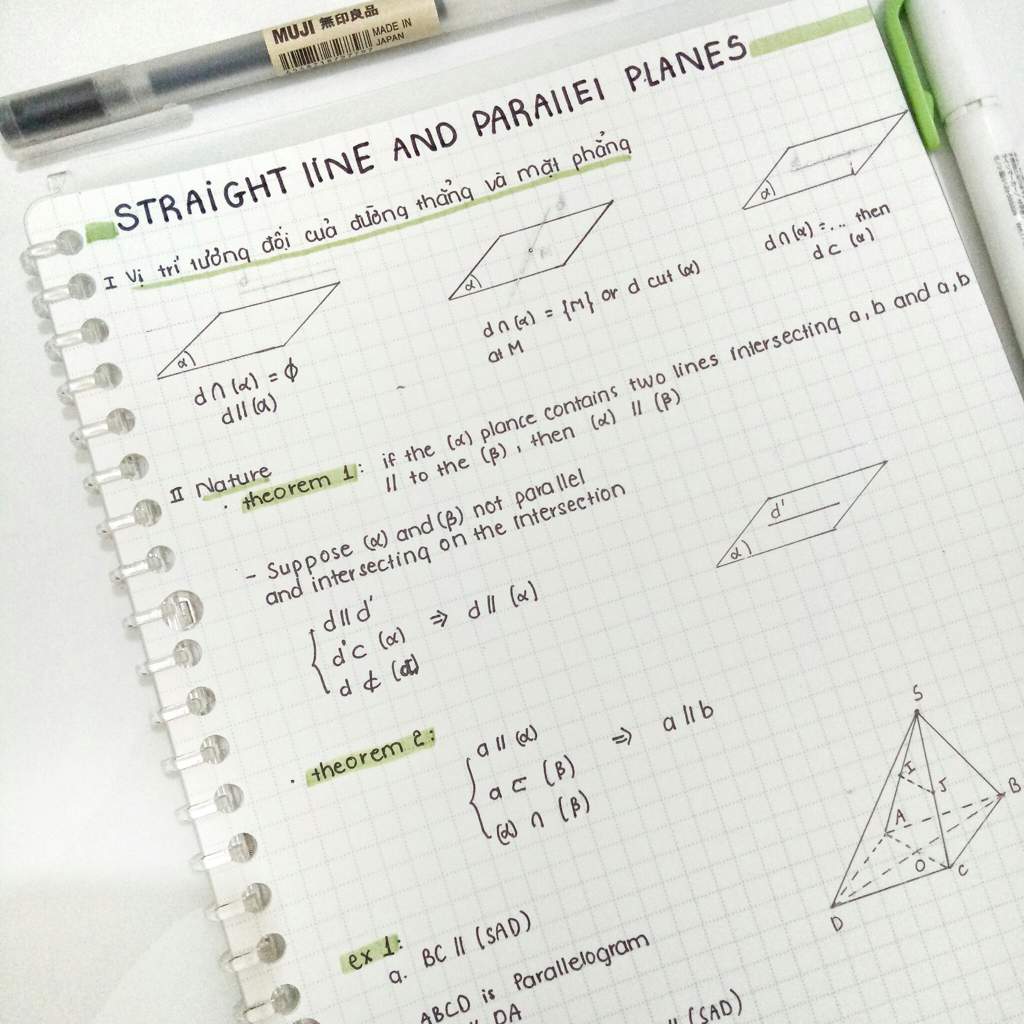 MUJI 無印良品
MADE IN
JAPAN
STRAIGHT lINE AND PARAllEl PLANES
I Vị trí tương đối của đường thẳng và mặt phẳng
d
α
d ∩ (α) = ϕ
d // (α)
d
M
α
d ∩ (α) = {M} or d cut (α)
at M
d
α
d ∩ (α) = ... then
d ⊂ (α)
II Nature
· theorem 1: if the (α) plance contains two lines intersecting a, b and a, b
// to the (β), then (α) // (β)
- Suppose (α) and (β) not parallel
and intersecting on the intersection
d'
α
d // d'
d' ⊂ (α) ⇒ d // (α)
d ⊄ (α)
· theorem 2:
a // (α)
a ⊂ (β) ⇒ a // b
(α) ∩ (β)
S
I
J
A
B
O
C
D
ex 1:
a. BC // (SAD)
ABCD is Parallelogram
// DA
// (SAD)